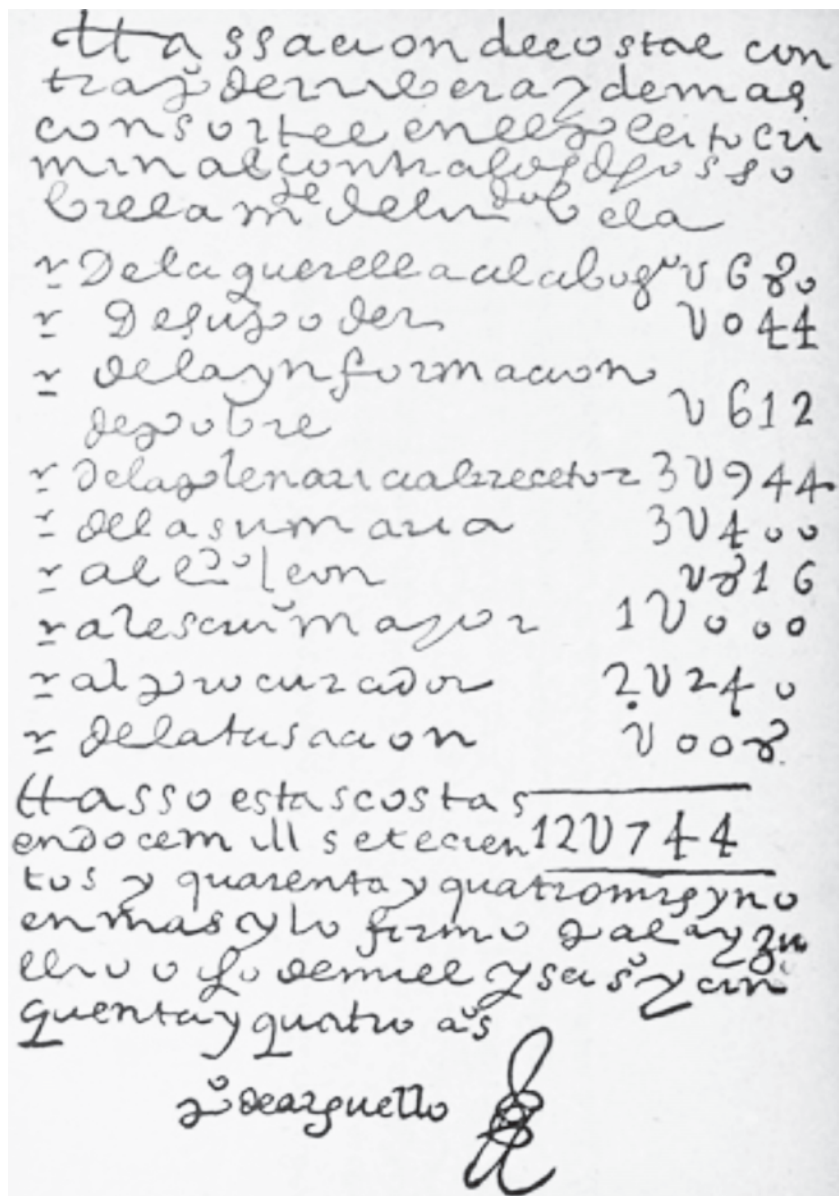 ttassacion de costas con
tra po de rribera y demas
consortes en el pleito cri
minal contra los dhos so
bre la mte de
De la querella al abogdo U680
De su poder U044
de la ynformacion
de pobre U612
De la plenaria al rrecetor 3U944
de la sumaria 3U400
al leon U816
al escrivo mayor 1U000
al procurador 2U240
de la tasacion U008
ttasso estas costas
en doce mill setecien 12U744
tos y quarenta y quatro mrs y no
en mas y lo firmo
de mill y seisos y cin
quenta y quatro as
po de arguello